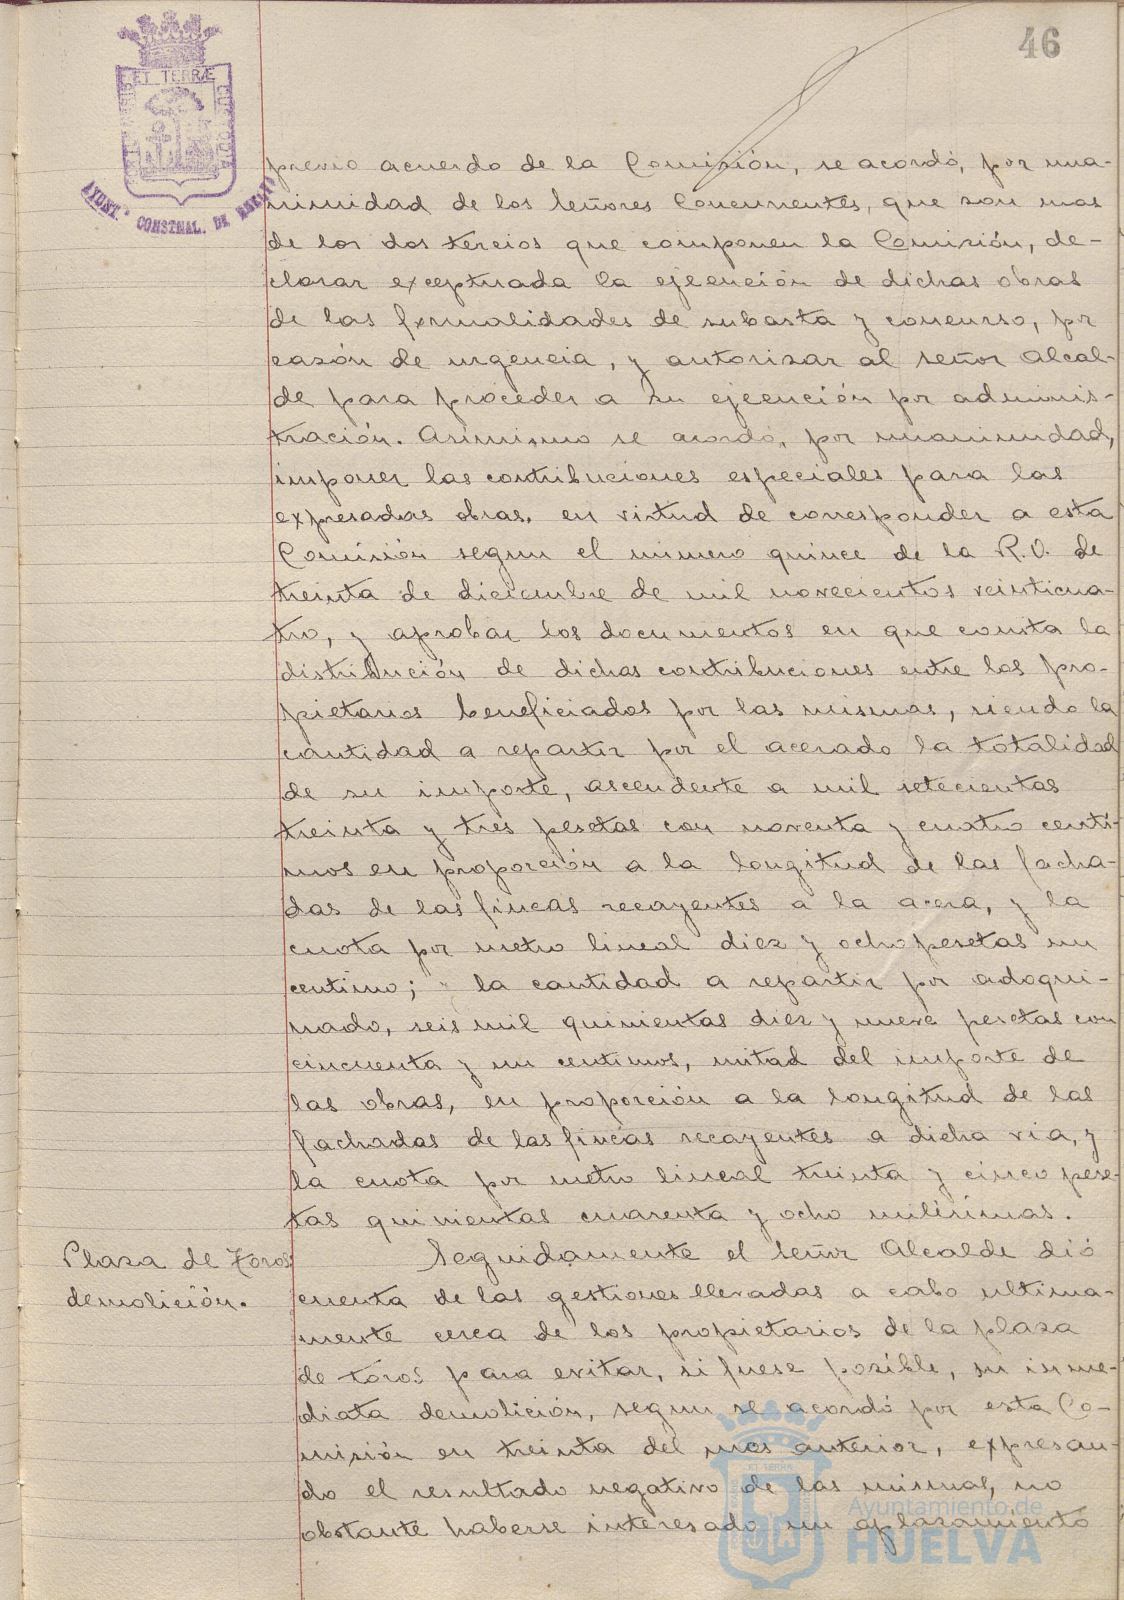 46
ET TERRÆ
AYUNT. CONSTNAL. DE HUELVA
previo acuerdo de la Comisión, se acordó, por una-
nimidad de los señores Concurrentes, que son mas
de los dos tercios que componen la Comisión, de-
clarar exceptuada la ejecución de dichas obras
de las formalidades de subasta y concurso, por
razón de urgencia, y autorizar al señor Alcal-
de para proceder a su ejecución por adminis-
tración. Asimismo se acordó, por unanimidad,
imponer las contribuciones especiales para las
expresadas obras, en virtud de corresponder a esta
Comisión segun el número quince de la R.O. de
treinta de diciembre de mil novecientos veinticua-
tro, y aprobar los documentos en que consta la
distribución de dichas contribuciones entre los pro-
pietarios beneficiados por las mismas, siendo la
cantidad a repartir por el acerado la totalidad
de su importe, ascendente a mil setecientas
treinta y tres pesetas con noventa y cuatro centi-
mos en proporción a la longitud de las facha-
das de las fincas recayentes a la acera, y la
cuota por metro lineal diez y ocho pesetas un
centimo; la cantidad a repartir por adoqui-
nado, seis mil quinientas diez y nueve pesetas con
cincuenta y un centimos, mitad del importe de
las obras, en proporción a la longitud de las
fachadas de las fincas recayentes a dicha via, y
la cuota por metro lineal treinta y cinco pese-
tas quinientas cuarenta y ocho milésimas.
Plaza de Toros
demolición.
Seguidamente el señor Alcalde dió
cuenta de las gestiones llevadas a cabo ultima-
mente cerca de los propietarios de la plaza
de toros para evitar, si fuese posible, su inme-
diata demolición, segun se acordó por esta Co-
misión en treinta del mes anterior, expresan-
do el resultado negativo de las mismas, no
obstante haberse interesado un aplazamiento
Ayuntamiento de
HUELVA